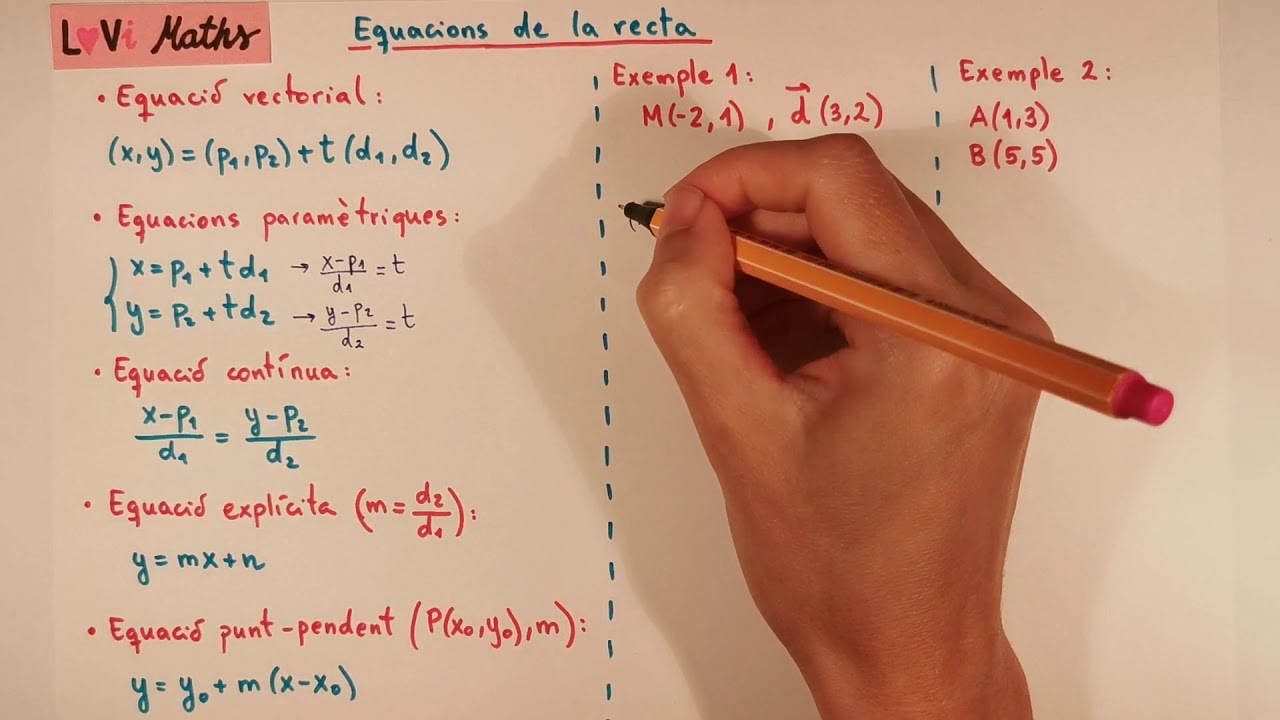 LoVi Maths
Equacions de la recta
• Equació vectorial:
(x,y)=(p₁,p₂)+t(d₁,d₂)
• Equacions paramètriques:
x=p₁+td₁ → x-p₁/d₁=t
y=p₂+td₂ → y-p₂/d₂=t
• Equació contínua:
x-p₁/d₁ = y-p₂/d₂
• Equació explícita (m=d₂/d₁):
y=mx+n
• Equació punt-pendent (P(x₀,y₀),m):
y=y₀+m(x-x₀)
Exemple 1:
M(-2,1), d⃗(3,2)
Exemple 2:
A(1,3)
B(5,5)